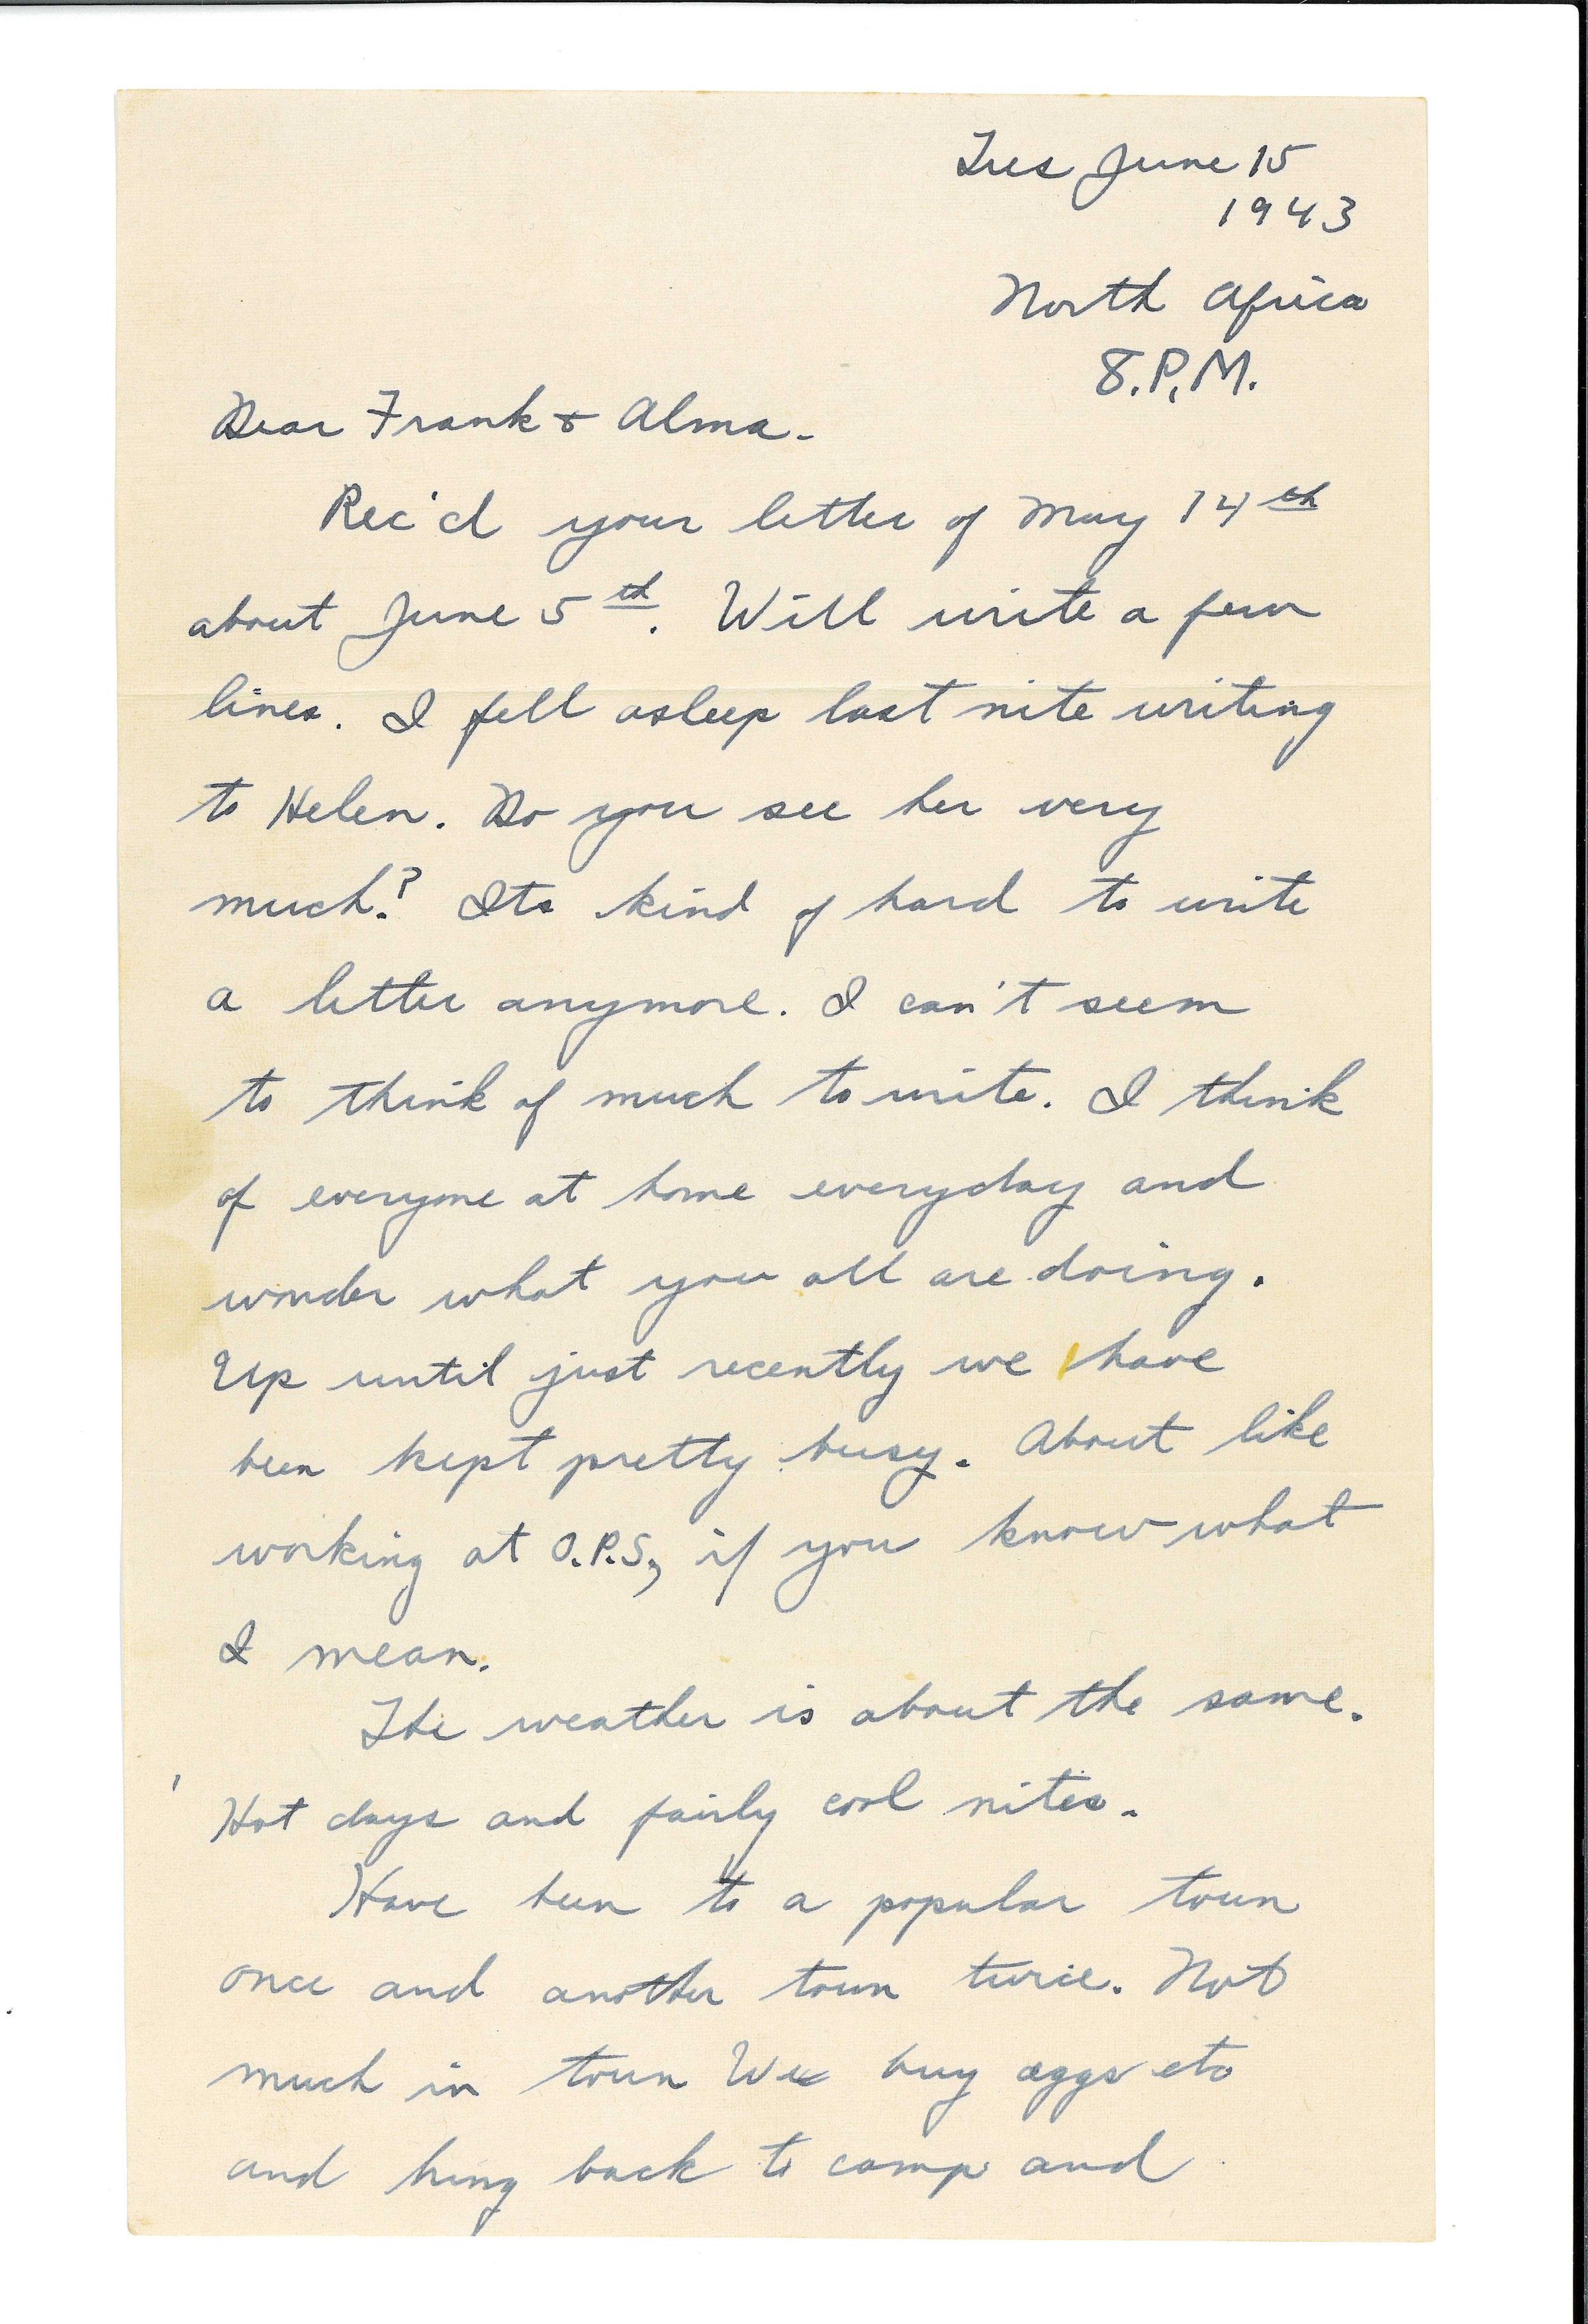 Tues June 15
1943
North Africa
8.P.M.
Dear Frank & Alma.
Rec'd your letter of May 14th
about June 5th. Will write a few
lines. I fell asleep last nite writing
to Helen. Do you see her very
much? Its kind of hard to write
a letter anymore. I can't seem
to think of much to write. I think
of everyone at home everyday and
wonder what you all are doing.
Up until just recently we have
been kept pretty busy. About like
working at O.P.S, if you know what
I mean.
The weather is about the same.
Hot days and fairly cool nites.
Have been to a popular town
once and another town twice. Not
much in town We buy eggs etc
and bring back to camp and